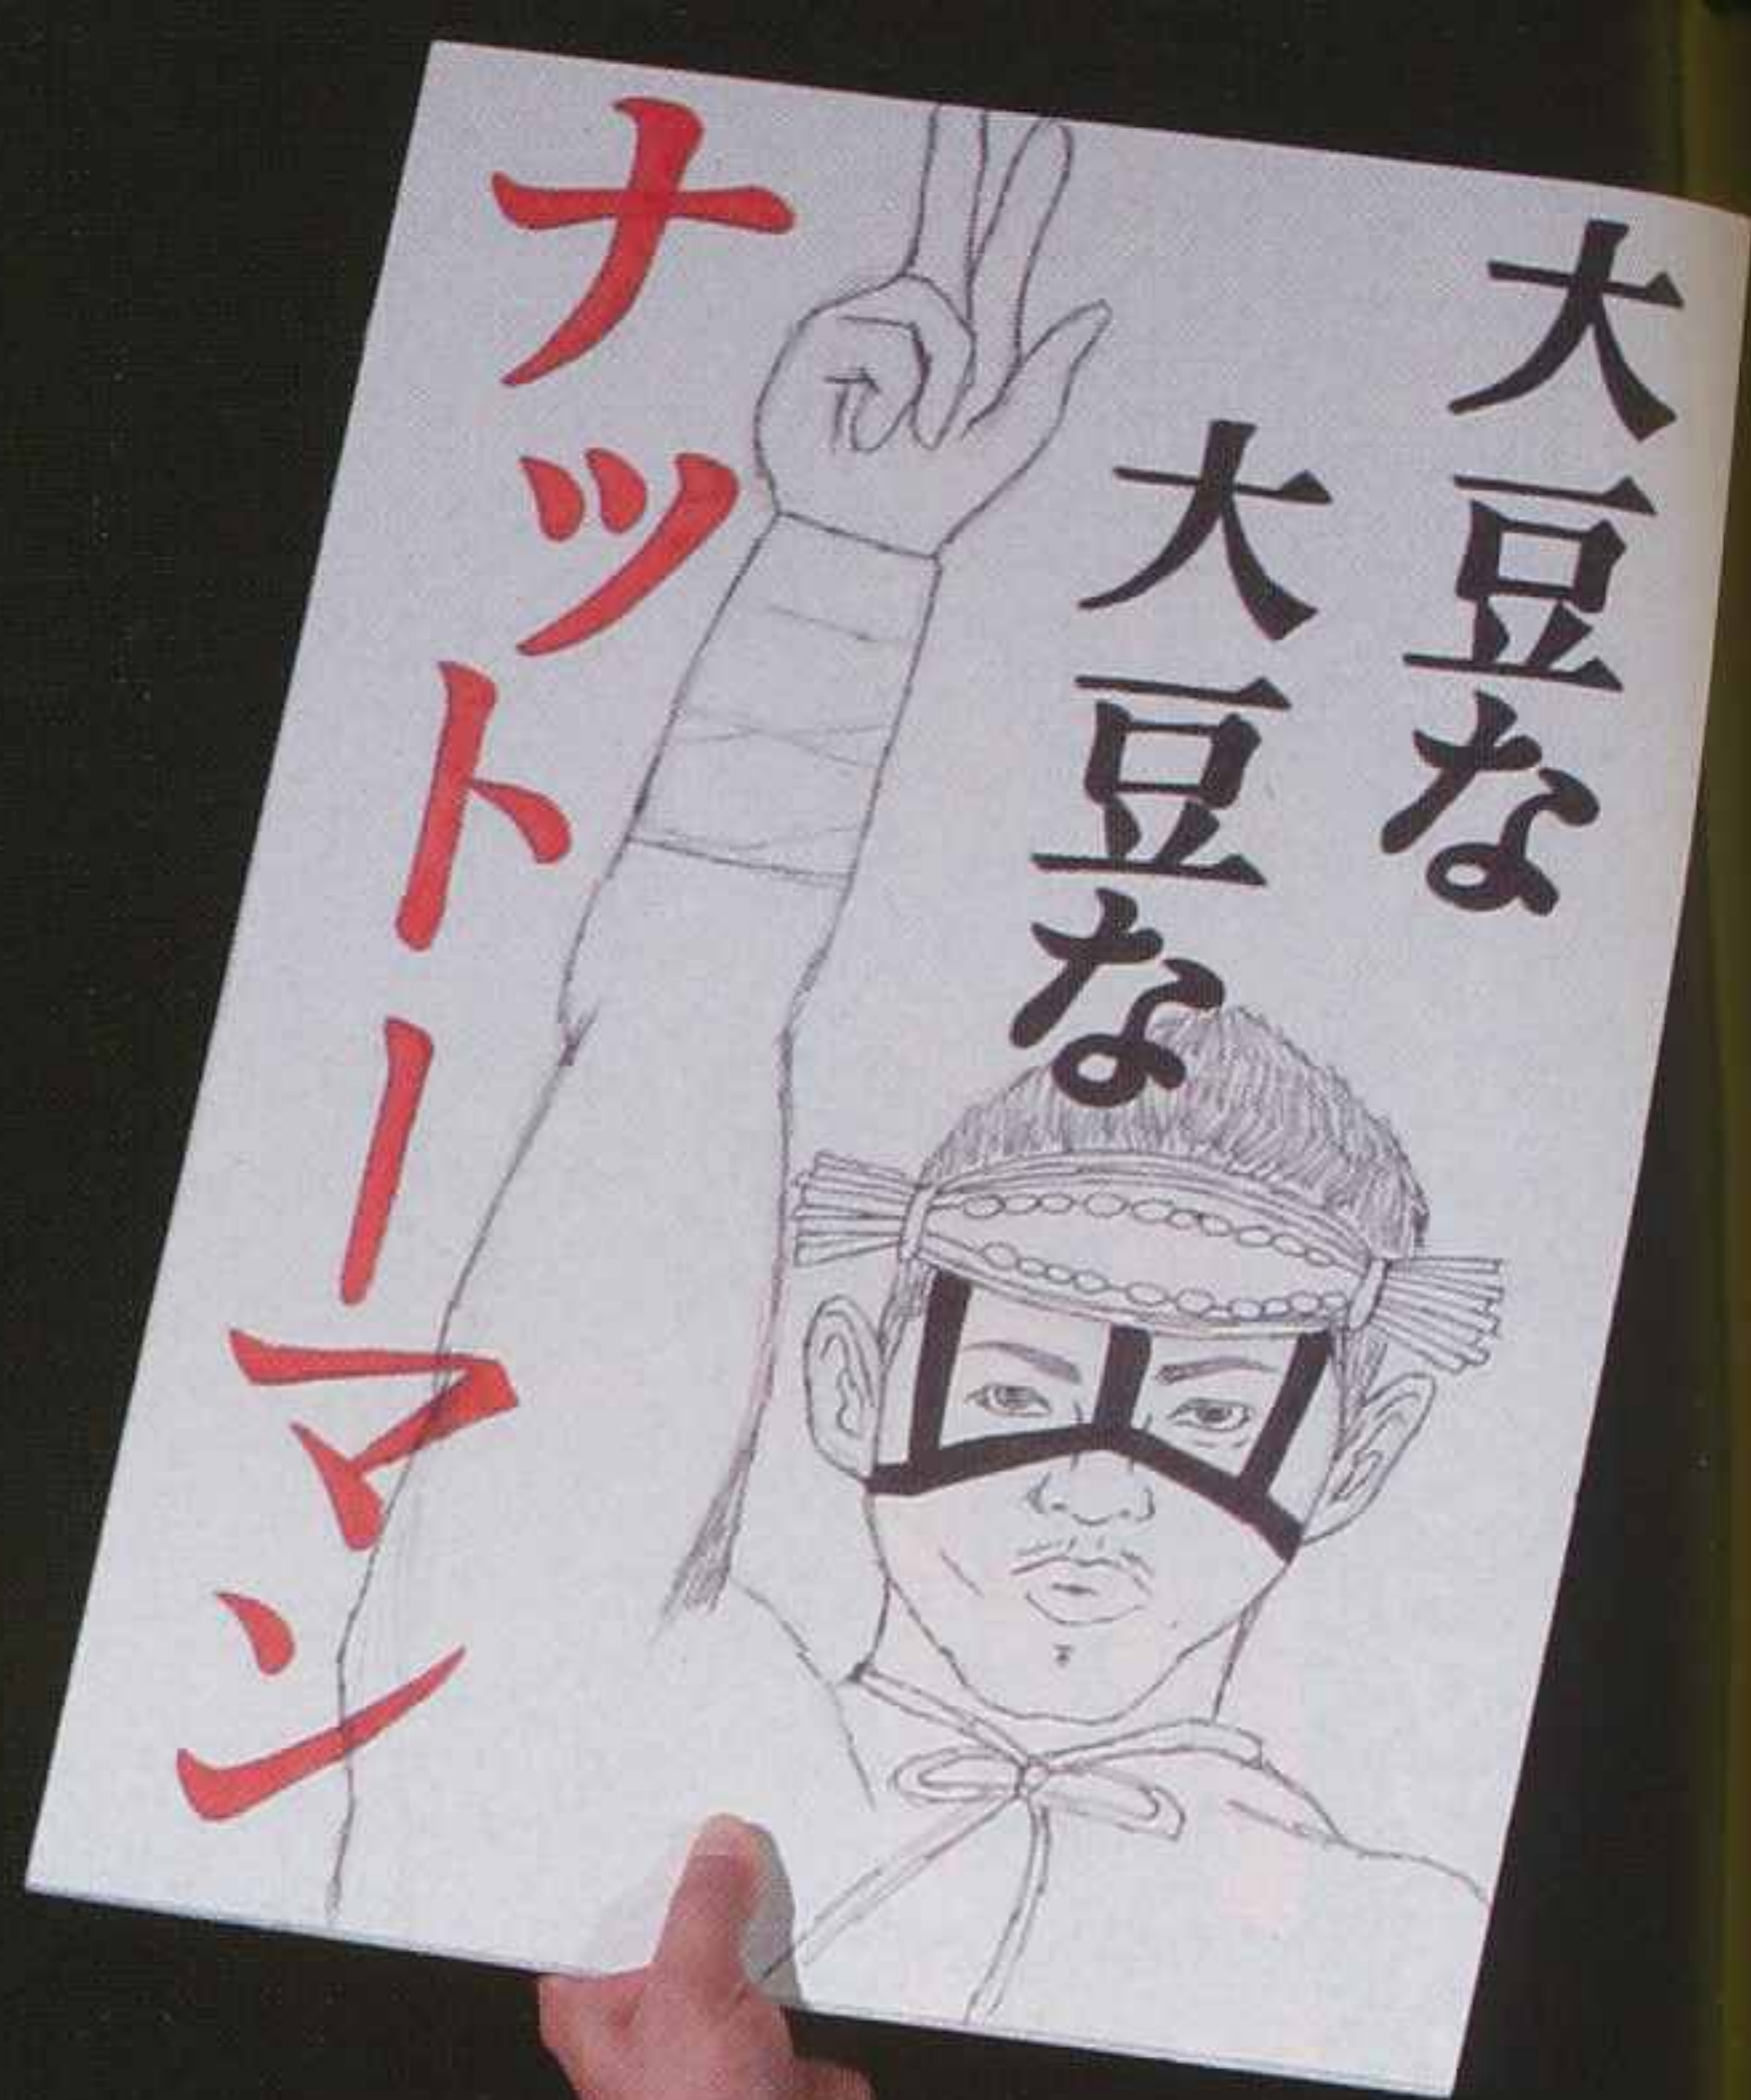 大豆な
大豆な
ナットーマン